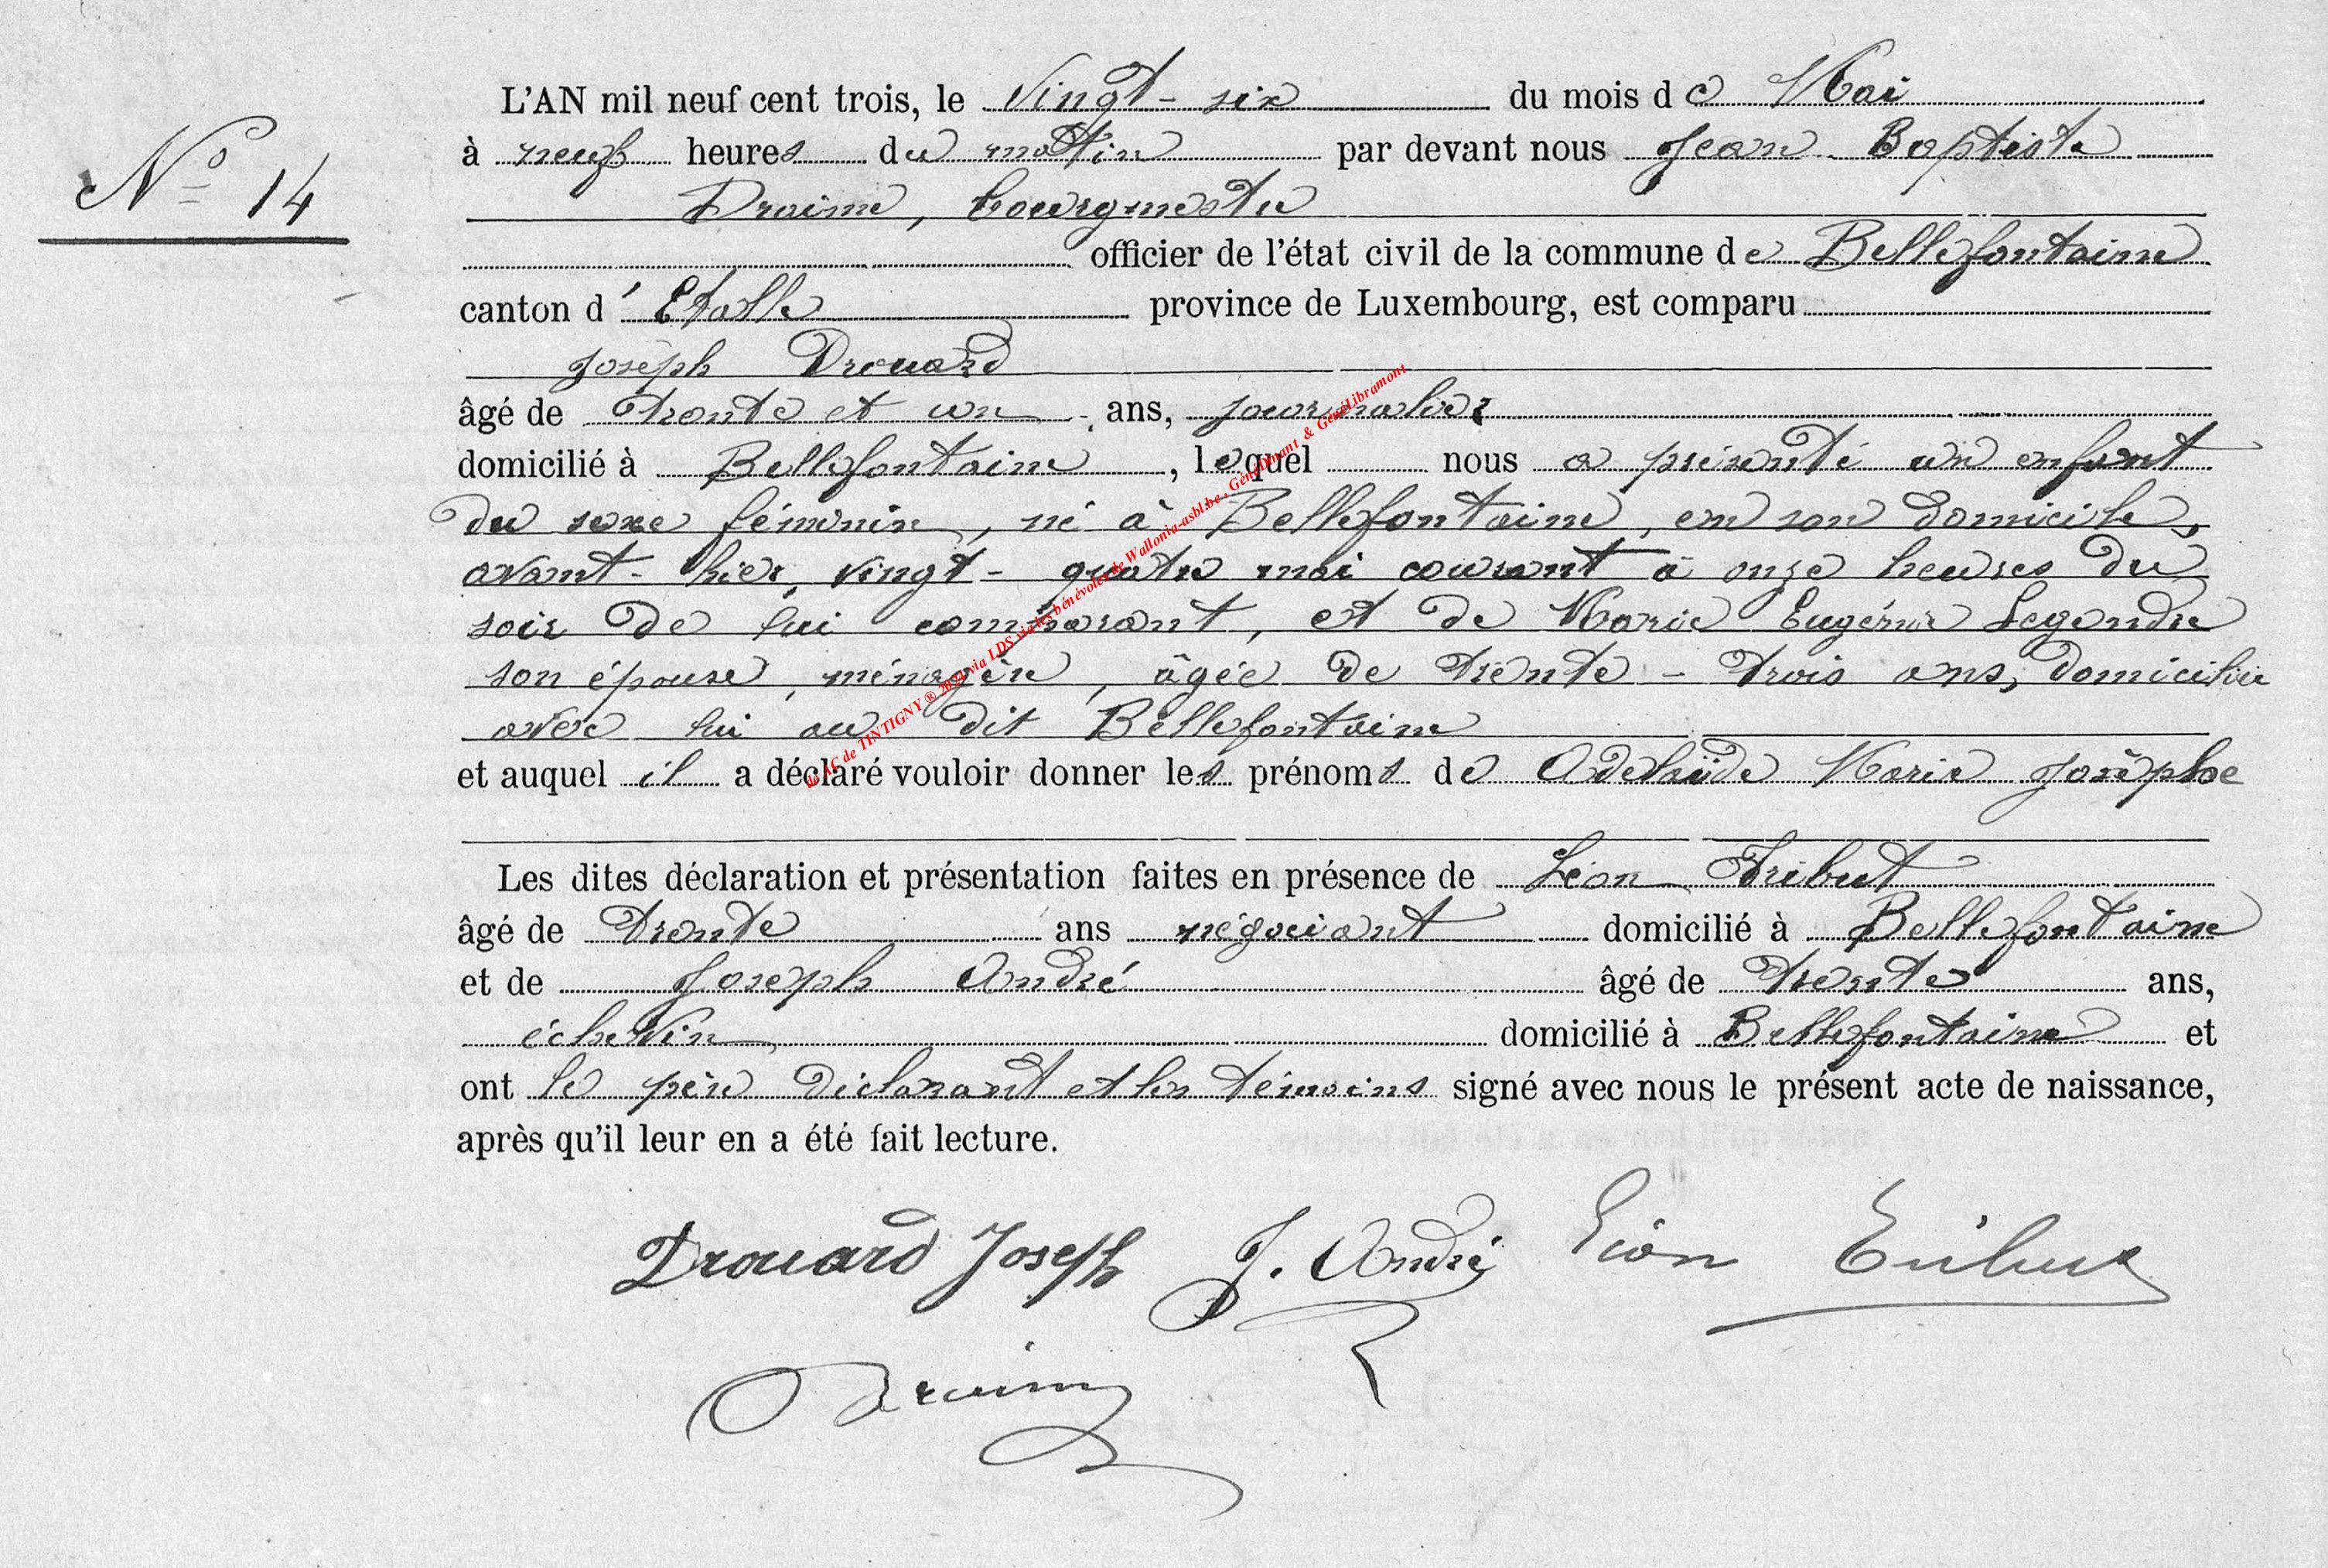 N° 14
L'AN mil neuf cent trois, le Vingt-six du mois de Mai
à neuf heures du matin par devant nous Jean Baptiste
Draime, bourgmestre
officier de l'état civil de la commune de Bellefontaine
canton d'Etalle province de Luxembourg, est comparu
Joseph Drouard
âgé de trente et un ans, journalier
domicilié à Bellefontaine, lequel nous a présenté un enfant
du sexe féminin, né à Bellefontaine, en son domicile,
avant-hier, vingt-quatre mai courant à onze heures du
soir de lui comparant, et de Marie Eugénie Legendre
son épouse, ménagère, âgée de trente-trois ans, domiciliée
avec lui au dit Bellefontaine
et auquel il a déclaré vouloir donner les prénoms de Adelaïde Marie Josèphe
Les dites déclaration et présentation faites en présence de Léon Tribut
âgé de trente ans négociant domicilié à Bellefontaine
et de Joseph André âgé de trente ans,
échevin domicilié à Bellefontaine et
ont le père déclarant et les témoins signé avec nous le présent acte de naissance,
après qu'il leur en a été fait lecture.
Drouard Joseph J. André Léon Tribut
Draime
AC de TINTIGNY ® via LDS via les bénévoles de Wallonia-asbl.be, & GénéLibramont